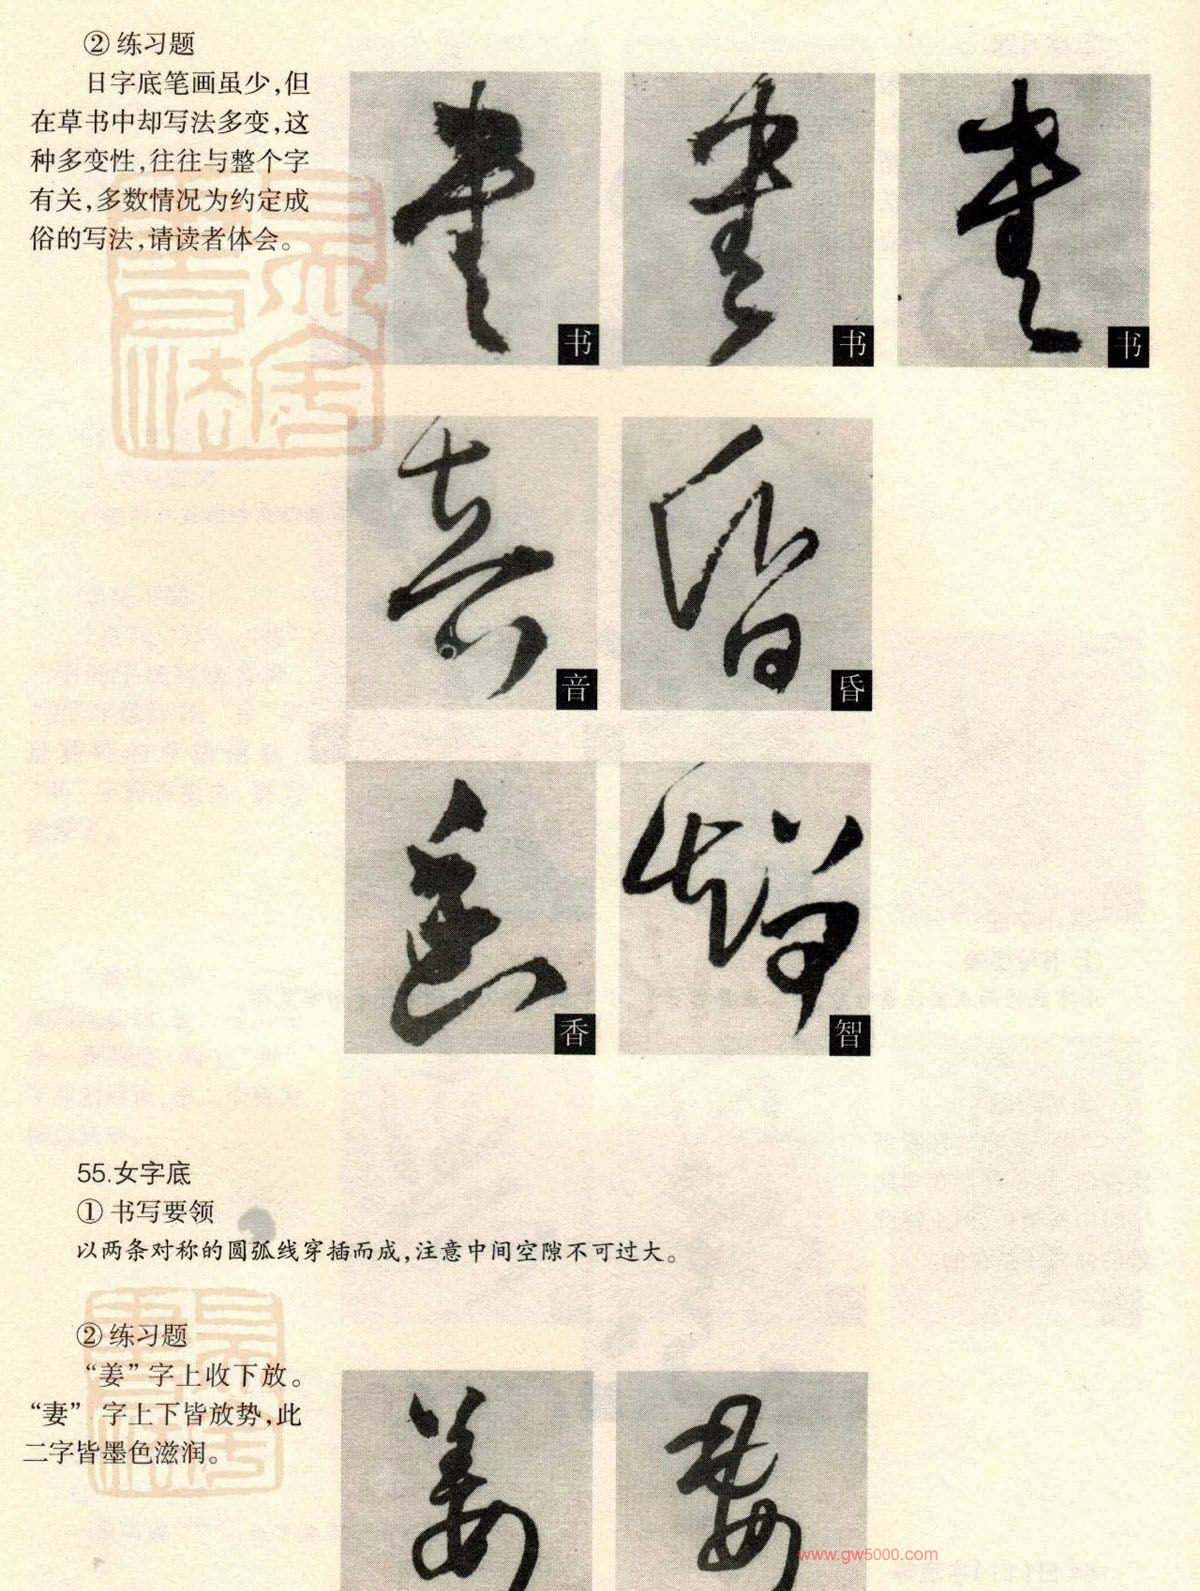 ② 练习题
日字底笔画虽少,但
在草书中却写法多变,这
种多变性,往往与整个字
有关,多数情况为约定成
俗的写法,请读者体会。
书
书
书
音
昏
香
智
55.女字底
① 书写要领
以两条对称的圆弧线穿插而成,注意中间空隙不可过大。
② 练习题
“姜”字上收下放。
“妻”字上下皆放势,此
二字皆墨色滋润。
www.gw5000.com